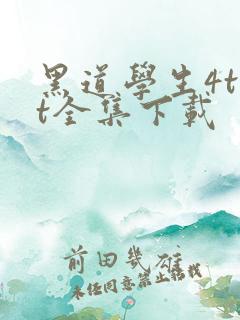 黑道學生4tx
t全集下載
前田幾雄
未经同意禁止转载